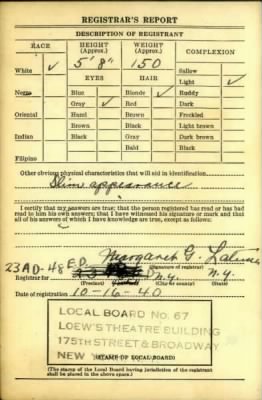 REGISTRAR'S REPORT
DESCRIPTION OF REGISTRANT
RACE HEIGHT (Approx.) WEIGHT (Approx.) COMPLEXION
White ✓ 5' 8" 150 Sallow
EYES HAIR Light ✓
Negro Blue Blonde ✓ Ruddy
Gray ✓ Red Dark
Oriental Hazel Brown Freckled
Brown Black Light brown
Indian Black Gray Dark brown
Bald Black
Filipino
Other obvious physical characteristics that will aid in identification
Slim appearance
I certify that my answers are true; that the person registered has read or has had
read to him his own answers; that I have witnessed his signature or mark and that
all of his answers of which I have knowledge are true, except as follows:
Margaret G.
(Signature of registrar)
23 A.D - 48 E.D.
Registrar for N.Y. N.Y.
(Precinct) (City or county) (State)
Date of registration 10-16-40
LOCAL BOARD No. 67
LOEW'S THEATRE BUILDING
175TH STREET & BROADWAY
NEW
(STAMP OF LOCAL BOARD)
(The stamp of the Local Board having jurisdiction of the registrant
shall be placed in the above space.)